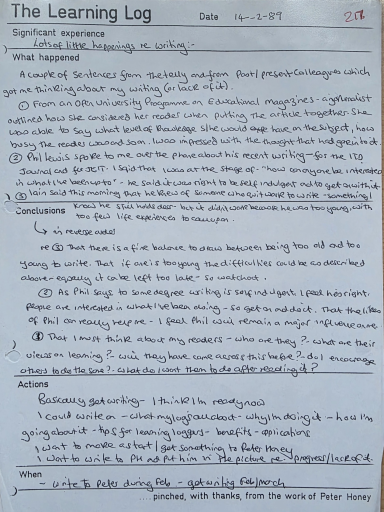 The Learning Log
Date 14-2-89
217
Significant experience
Lots of little happenings re writing:-
What happened
A couple of sentences from the telly and from past/present colleagues which
got me thinking about my writing (or lack of it).
① From an Open University Programme on Educational magazines - a journalist
outlined how she considered her reader when putting the article together. She
was able to say what level of knowledge s/he would have on the subject, how
busy the reader was and so on. I was impressed with the thought that had gone into it.
② Phil Lewis spoke to me over the phone about his recent writing - for the ITD
Journal and for JEIT. I said that I was at the stage of - "how can anyone be interested
in what I've been up to" - he said it was right to be self indulgent and to get on with it.
③ Iain said this morning that he knew of someone who quit work to write - something I
Conclusions know he still holds dear - but it didn't work because he was too young, with
too few life experiences to call upon.
in reverse order
re ③ That there is a fine balance to draw between being too old and too
young to write. That if one is too young the difficulties could be as described
above - equally it can be left too late - so watch out.
② As Phil says to some degree writing is self indulgent. I feel he's right,
people are interested in what I've been doing - so get on and do it. That the likes
of Phil can really help me - I feel Phil will remain a major influence on me.
① That I must think about my readers - who are they? - what are their
views on learning? - will they have come across this before? - do I encourage
others to do the same? - what do I want them to do after reading it?
Actions
Basically get writing - I think I'm ready now
I could write on - what my logs are about - why I'm doing it - how I'm
going about it - tips for learning loggers - benefits - applications
I want to make a start / get something to Peter Honey
I want to write to PH and put him in the picture re progress/lack of it.
When
- write to Peter during Feb - get writing Feb/March
....pinched, with thanks, from the work of Peter Honey